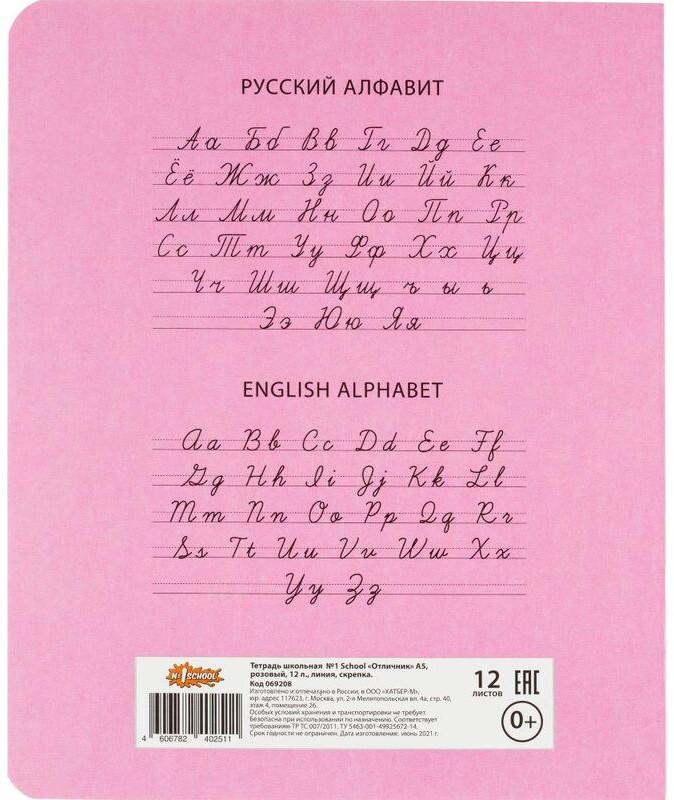 РУССКИЙ АЛФАВИТ
Аа Бб Вв Гг Дд Ее
Ёё Жж Зз Ии Йй Кк
Лл Мм Нн Оо Пп Рр
Сс Тт Уу Фф Хх Цц
Чч Шш Щщ ъ ы ь
Ээ Юю Яя
ENGLISH ALPHABET
Aa Bb Cc Dd Ee Ff
Gg Hh Ii Jj Kk Ll
Mm Nn Oo Pp Qq Rr
Ss Tt Uu Vv Ww Xx
Yy Zz
№1 SCHOOL
Тетрадь школьная №1 School «Отличник» А5,
розовый, 12 л., линия, скрепка.
Код 069208
Изготовлено и отпечатано в России, в ООО «ХАТБЕР-М»,
юр. адрес 117623, г. Москва, ул. 2-я Мелитопольская вл. 4а, стр. 40,
этаж 4, помещение 26.
Особых условий хранения и транспортировки не требует.
Безопасна при использовании по назначению. Соответствует
требованиям ТР ТС 007/2011, ТУ 5463-001-49925672-14.
Срок годности не ограничен. Дата изготовления: июнь 2021 г.
4 606782 402511
12
листов
ЕАС
0+